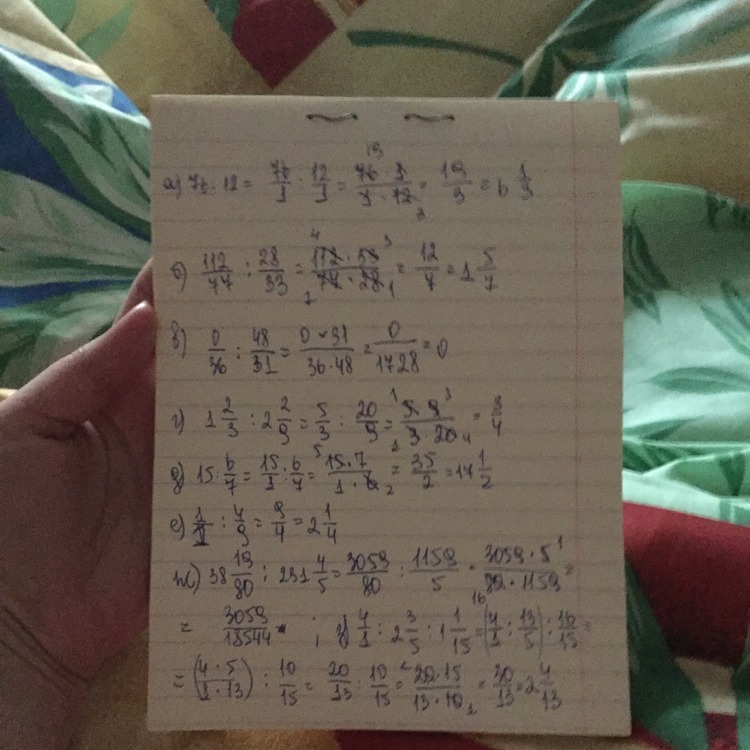 а) 76 : 12 = 76/1 : 12/1 = 76 · 1/1 · 12 = 19/3 = 6 1/3
б) 112/77 : 28/33 = 112 · 33/77 · 28 = 12/7 = 1 5/7
в) 0/36 : 48/31 = 0 · 31/36 · 48 = 0/1728 = 0
г) 1 2/3 : 2 2/9 = 5/3 : 20/9 = 5 · 9/3 · 20 = 3/4
д) 15 : 6/7 = 15/1 : 6/7 = 15 · 7/1 · 6 = 35/2 = 17 1/2
е) 1/1 : 4/9 = 9/4 = 2 1/4
ж) 38 19/80 : 231 4/5 = 3059/80 : 1159/5 = 3059 · 5/80 · 1159 =
= 3059/18544 ; з) 4/1 : 2 3/5 : 1 1/15 = (4/1 : 13/5) : 16/15 =
= (4 · 5/1 · 13) : 10/15 = 20/13 : 10/15 = 20 · 15/13 · 10 = 30/13 = 2 4/13